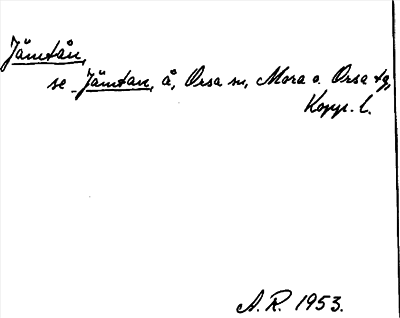 Jämtån,
se Jämtan, å, Orsa sn, Mora o. Orsa tg,
Kopp. l.
A. R. 1953.